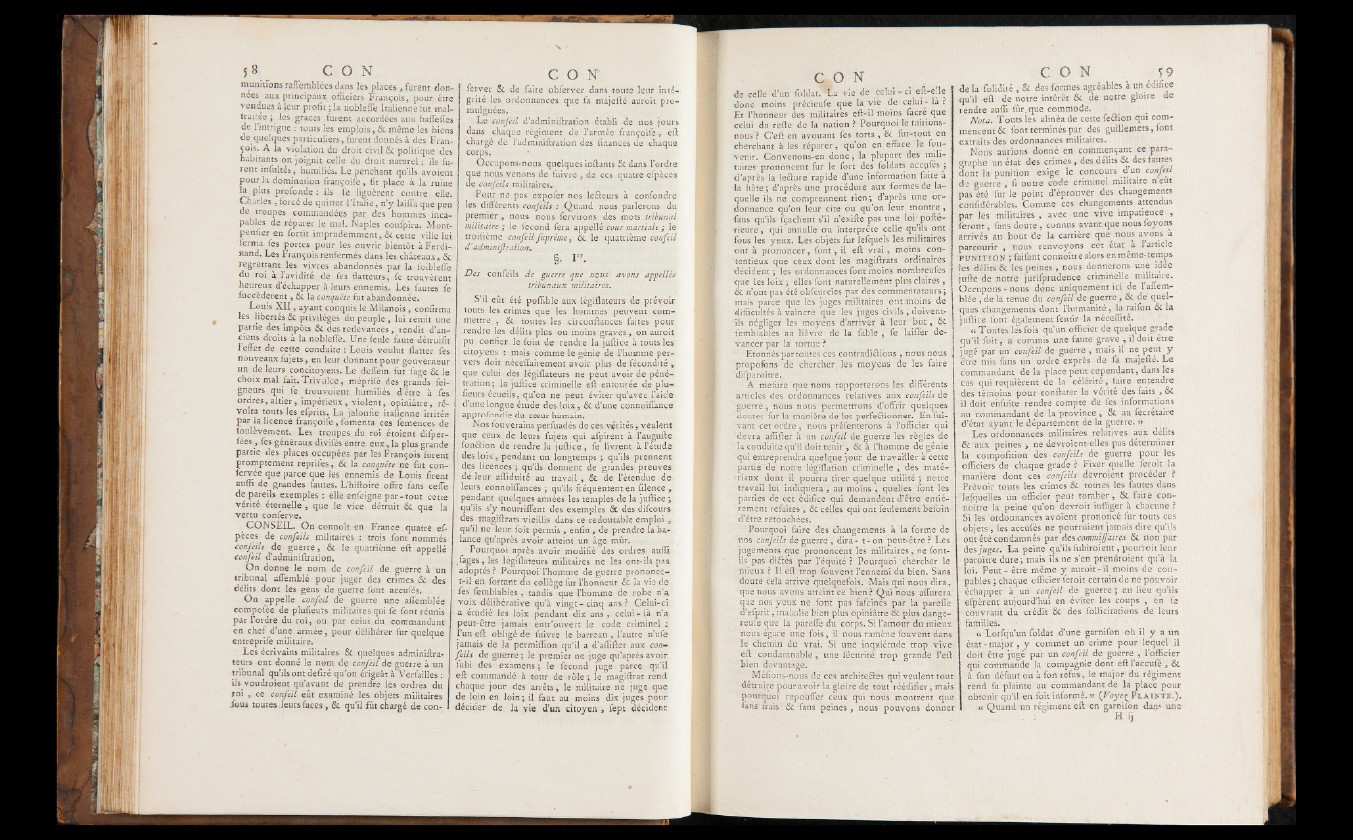 58 CON
munitions raſſemblées dans les places, furent don-
nées aux principaux officiers François, pour être
vendues à leur profit ; la nobleſſe Italienne fut mal-
traitée ; les graces furent accordées aux baſſeſſes
de l'intrigue : tous les emplois, & même les biens
de quelques particuliers, furent donnés à des Fran-
çois. A la violation du droit civil & politique des
habitants on joignit celle du droit naturel : ils fu-
rent inſultés, humiliés. Le penchant qu'ils avoient
pour la domination françoiſe, fit place à la ruine
la plus profonde ; ils ſe liguèrent contre elle.
Charles, forcé de quitter l'Italie, n'y laiſſa que peu
de troupes commendées par des hommes inca-
pables de réparer le mal. Naples conſpira. Mont-
penſier en ſortit imprudemment, & cette ville lui
ferma ſes portes pour les ouvrir bientôt à Ferdi-
nand. Les François renfermés dans les châteaux, &
regrettant les vivres abandonnés par la foibleſſe
du roi à l'avidité de ſes flatteurs, ſe trouvèrent
heureux d'échapper à leurs ennemis. Les fautes ſe
ſuccédèrent, & la conquête fut abandonnée.
Louis XII, ayant conquis le Milanois, confirma
les libertés & privilèges du peuple, lui remit une
partie des impôts & des redevances, rendit d'an-
ciens droits à la nobleſſe. Une ſeule faute détruiſit
l'effet de cette conduite : Louis voulut flatter ſes
nouveaux ſujets, en leur donnant pour gouverneur
un de leurs concitoyens. Le deſſein fut ſage & le
choix mal fait. Trivulce, mépriſé des grands ſei-
gneurs qui ſe trouvoient humiliés d'être à ſes
ordres, altier, impérieux, violent, opiniâtre, ré-
volta tous les eſprits. La jalouſie italienne irritée
par la licence françoiſe, fomenta ces ſemences de
ſoulèvement. Les troupes du roi étoient diſper-
ſées, ſes généraux diviſés entre eux, la plus grande
partie des places occupées par les François furent
promptement repriſes, & la conquête ne fut con-
ſervée que parce que les ennemis de Louis firent
auſſi de grandes fautes. L'hiſtoire offre ſans ceſſe
de pareils exemples : elle enſeigne par-tout cette
vérité éternelle, que le vice détruit & que la
vertu conſerve.
CONSEIL. On connoît en France quatre eſ-
pèces de conſeils militaires : trois ſont nommés
conſeils de guerre, & le quatrième eſt appellé
conſeil d'adminiſtration.
On donne le nom de conſeil de guerre à un
tribunal aſſemblé pour juger des crimes & des
délits dont les gens de guerre ſont accuſés.
On appelle conſeil de guerre une aſſemblée
compoſée de pluſieurs militaires qui ſe ſont réunis
par l'ordre du roi, ou par celui du commandant
en chef d'une armée, pour délibérer ſur quelque
entrepriſe militaire.
Les écrivains militaires & quelques adminiſtra-
teurs ont donné le nom de conſeil de guerre à un
tribunal qu'ils ont deſiré qu'on érigeât à Verſailles :
ils voudroient qu'avant de prendre les ordres du
roi, ce conſeil eût examiné les objets militaires
ſous toutes leurs faces, & qu'il fût chargé de con-
CON
ſerver & de faire obſerver dans toute leur inté-
grité les ordonnances que ſa majeſté auroit pro-
mulguées.
Le conſeil d'adminiſtration établi de nos jours
dans chaque régiment de l'armée françoiſe, eſt
chargé de l'adminiſtration des finances de chaque
corps.
Occupons-nous quelques inſtants & dans l'ordre
que nous venons de ſuivre, de ces quatre eſpèces
de conſeils militaires.
Pour ne pas expoſer nos lecteurs à confondre
les différents conſeils : Quand nous parlerons du
premier, nous nous ſervirons des mots tribunal
militaire ; le ſecond ſera appellé cour martiale ; le
troiſième conſeil ſuprême, & le quatrième conſeil
d'adminiſtration.
§. Ier.
Des conſeils de guerre que nous avons appellés
tribunaux militaires.
S'il eût été poſſible aux légiſlateurs de prévoir
tous les crimes que les hommes peuvent com-
mettre, & toutes les circonſtances faites pour
rendre les délits plus ou moins graves, on auroit
pu confier le ſoin de rendre la juſtice à tous les
citoyens : mais comme le génie de l'homme per-
vers doit néceſſairement avoir plus de fécondité,
que celui des légiſlateurs ne peut avoir de péné-
tration ; la juſtice criminelle eſt entourée de plu-
ſieurs écueils, qu'on ne peut éviter qu'avec l'aide
d'une longue étude des loix, & d'une connoiſſance
approfondie du cœur humain.
Nos ſouverains perſuadés de ces vérités, veulent
que ceux de leurs ſujets qui aſpirent à l'auguſte
fonction de rendre la juſtice, ſe livrent à l'étude
des loix, pendant un longtemps ; qu'ils prennent
des licences ; qu'ils donnent de grandes preuves
de leur aſſiduité au travail, & de l'étendue de
leurs connoiſſances ; qu'ils fréquentent en ſilence,
pendant quelques années les temples de la juſtice ;
qu'ils s'y nourriſſent des exemples & des diſcours
des magiſtrats vieillis dans ce redoutable emploi,
qu'il ne leur ſoit permis, enfin, de prendre la ba-
lance qu'après avoir atteint un âge mûr.
Pourquoi après avoir modifié des ordres auſſi
ſages, les légiſlateurs militaires ne les ont-ils pas
adoptés ? Pourquoi l'homme de guerre prononce-
t-il en ſortant du collège ſur l'honneur & la vie de
ſes ſemblables, tandis que l'homme de robe n'a
voix délibérative qu'à vingt-cinq ans ? Celui-ci
a étudié les loix pendant dix ans, celui-là n'a
peut-être jamais entr'ouvert le code criminel :
l'un eſt obligé de ſuivre le barreau, l'autre n'uſe
jamais de la permiſſion qu'il a d'aſſiſter aux con-
ſeils de guerre ; le premier ne juge qu'après avoir
ſubi des examens ; le ſecond juge parce qu'il
eſt commandé à tour de rôle ; le magiſtrat rend
chaque jour des arrêts, le militaire ne juge que
de loin en loin ; il faut au moins dix juges pour
décider de la vie d'un citoyen, ſept décident
CON
de celle d'un ſoldat. La vie de celui-ci eſt-elle
donc moins précieuſe que la vie de celui-là ?
Et l'honneur des militaires eſt-il moins ſacré que
celui du reſte de la nation ? Pourquoi le tairions-
nous ? C'eſt en avouant ſes torts, & ſur-tout en
cherchant à les réparer, qu'on en efface le ſou-
venir. Convenons-en donc, la plupart des mili-
taires prononcent ſur le ſort des ſoldats accuſés ;
d'après la lecture rapide d'une information faite à
la hâte ; d'après une procédure aux formes de la-
quelle ils ne comprennent rien ; d'après une or-
donnance qu'on leur cite ou qu'on leur montre,
ſans qu'ils ſçachent s'il n'exiſte pas une loi poſté-
rieure, qui annulle ou interprète celle qu'ils ont
ſous les yeux. Les objets ſur leſquels les militaires
ont à prononcer, ſont, il eſt vrai, moins con-
tentieux que ceux dont les magiſtrats ordinaires
décident ; les ordonnances ſont moins nombreuſes
que les loix ; elles ſont naturellement plus claires,
& n'ont pas été obſcurcies par des commentateurs ;
mais parce que les juges militaires ont moins de
difficultés à vaincre que les juges civils, doivent-
ils négliger les moyens d'arriver à leur but, &
ſemblables au lièvre de la fable, ſe laiſſer de-
vancer par la tortue ?
Etonnés par toutes ces contradictions, nous nous
propoſons de chercher les moyens de les faire
diſparoître.
A meſure que nous rapporterons les différents
articles des ordonnances relatives aux conſeils de
guerre, nous nous permettrons d'offrir quelques
doutes ſur la manière de les perfectionner. En ſui-
vant cet ordre, nous préſenterons à l'officier qui
devra aſſiſter à un conſeil de guerre les règles de
la conduite qu'il doit tenir, & à l'homme de génie
qui entreprendra quelque jour de travailler à cette
partie de notre légiſlation criminelle, des maté-
riaux dont il pourra tirer quelque utilité ; notre
travail lui indiquera, au moins, quelles ſont les
parties de cet édifice qui demandent d'être entiè-
rement refaites, & celles qui ont ſeulement beſoin
d'être retouchées.
Pourquoi faire des changements à la forme de
nos conſeils de guerre, dira-t-on peut-être ? Les
jugements que prononcent les militaires, ne ſont-
ils pas dictés par l'équité ? Pourquoi chercher le
mieux ? Il eſt trop ſouvent l'ennemi du bien. Sans
doute cela arrive quelquefois. Mais qui nous dira,
que nous avons atteint ce bien ? Qui nous aſſurera
que nos yeux ne ſont pas faſcinés par la pareſſe
d'eſprit, maladie bien plus opiniâtre & plus dange-
reuſe que la pareſſe du corps. Si l'amour du mieux
nous égare une fois, il nous ramène ſouvent dans
le chemin du vrai. Si une inquiétude trop vive
eſt condamnable, une ſécurité trop grande l'eſt
bien davantage.
Méfions-nous de ces architectes qui veulent tout
détruire pour avoir la gloire de tout réédifier, mais
pourquoi repouſſer ceux qui nous montrent que
ſans frais & ſans peines, nous pouvons donner
CON 59
de la ſolidité, & des formes agréables à un édifice
qu'il eſt de notre intérêt & de notre gloire de
rendre auſſi ſûr que commode.
Nota. Tous les alinéa de cette ſection qui com-
mencent & ſont terminés par des guillemets, ſont
extraits des ordonnances militaires.
Nous aurions donné en commençant ce para-
graphe un état des crimes, des délits & des fautes
dont la punition exige le concours d'un conſeil
de guerre, ſi notre code criminel militaire n'eût
pas été ſur le point d'éprouver des changements
conſidérables. Comme ces changements attendus
par les militaires, avec une vive impatience,
ſeront, ſans doute, connus avant que nous ſoyons
arrivés au bout de la carrière que nous avons à
parcourir, nous renvoyons cet état à l'article
PUNITION ; faiſant connoître alors en même-temps
les délits & les peines, nous donnerons une idée
juſte de notre juriſprudence criminelle militaire.
Occupons-nous donc uniquement ici de l'aſſem-
blée, de la tenue du conſeil de guerre, & de quel-
ques changements dont l'humanité, la raiſon & la
juſtice font également ſentir la néceſſité.
« Toutes les fois qu'un officier de quelque grade
qu'il ſoit, a commis une faute grave, il doit être
jugé par un conſeil de guerre, mais il ne peut y
être mis ſans un ordre exprès de ſa majeſté. Le
commandant de la place peut cependant, dans les
cas qui requièrent de la célérité, faire entendre
des témoins pour conſtater la vérité des faits, &
il doit enſuite rendre compte de ſes informations
au commandant de la province, & au ſecrétaire
d'état ayant le département de la guerre. »
Les ordonnances militaires relatives aux délits
& aux peines, ne devroient-elles pas déterminer
la compoſition des conſeils de guerre pour les
officiers de chaque grade ? Fixer quelle ſeroit la
manière dont ces conſeils devroient procéder ?
Prévoir tous les crimes & toutes les fautes dans
leſquelles un officier peut tomber, & faire con-
noître la peine qu'on devroit infliger à chacune ?
Si les ordonnances avoient prononcé ſur tous ces
objets, les accuſés ne pourroient jamais dire qu'ils
ont été condamnés par des commiſſaires & non par
des juges. La peine qu'ils ſubiroient, pourroit leur
paroître dure ; mais ils ne s'en prendroient qu'à la
loi. Peut-être même y auroit-il moins de cou-
pables ; chaque officier ſeroit certain de ne pouvoir
échapper à un conſeil de guerre ; au lieu qu'ils
eſpèrent aujourd'hui en éviter les coups, en ſe
couvrant du crédit & des ſollicitations de leurs
familles.
« Lorſqu'un ſoldat d'une garniſon où il y a un
état-major, y commet un crime pour lequel il
doit être jugé par un conſeil de guerre, l'officier
qui commande la compagnie dont eſt l'accuſé, &
à ſon défaut ou à ſon refus, le major du régiment
rend ſa plainte au commandant de la place pour
obtenir qu'il en ſoit informé. » (Voyez PLAINTE.).
« Quand un régiment eſt en garniſon dans une
H ij